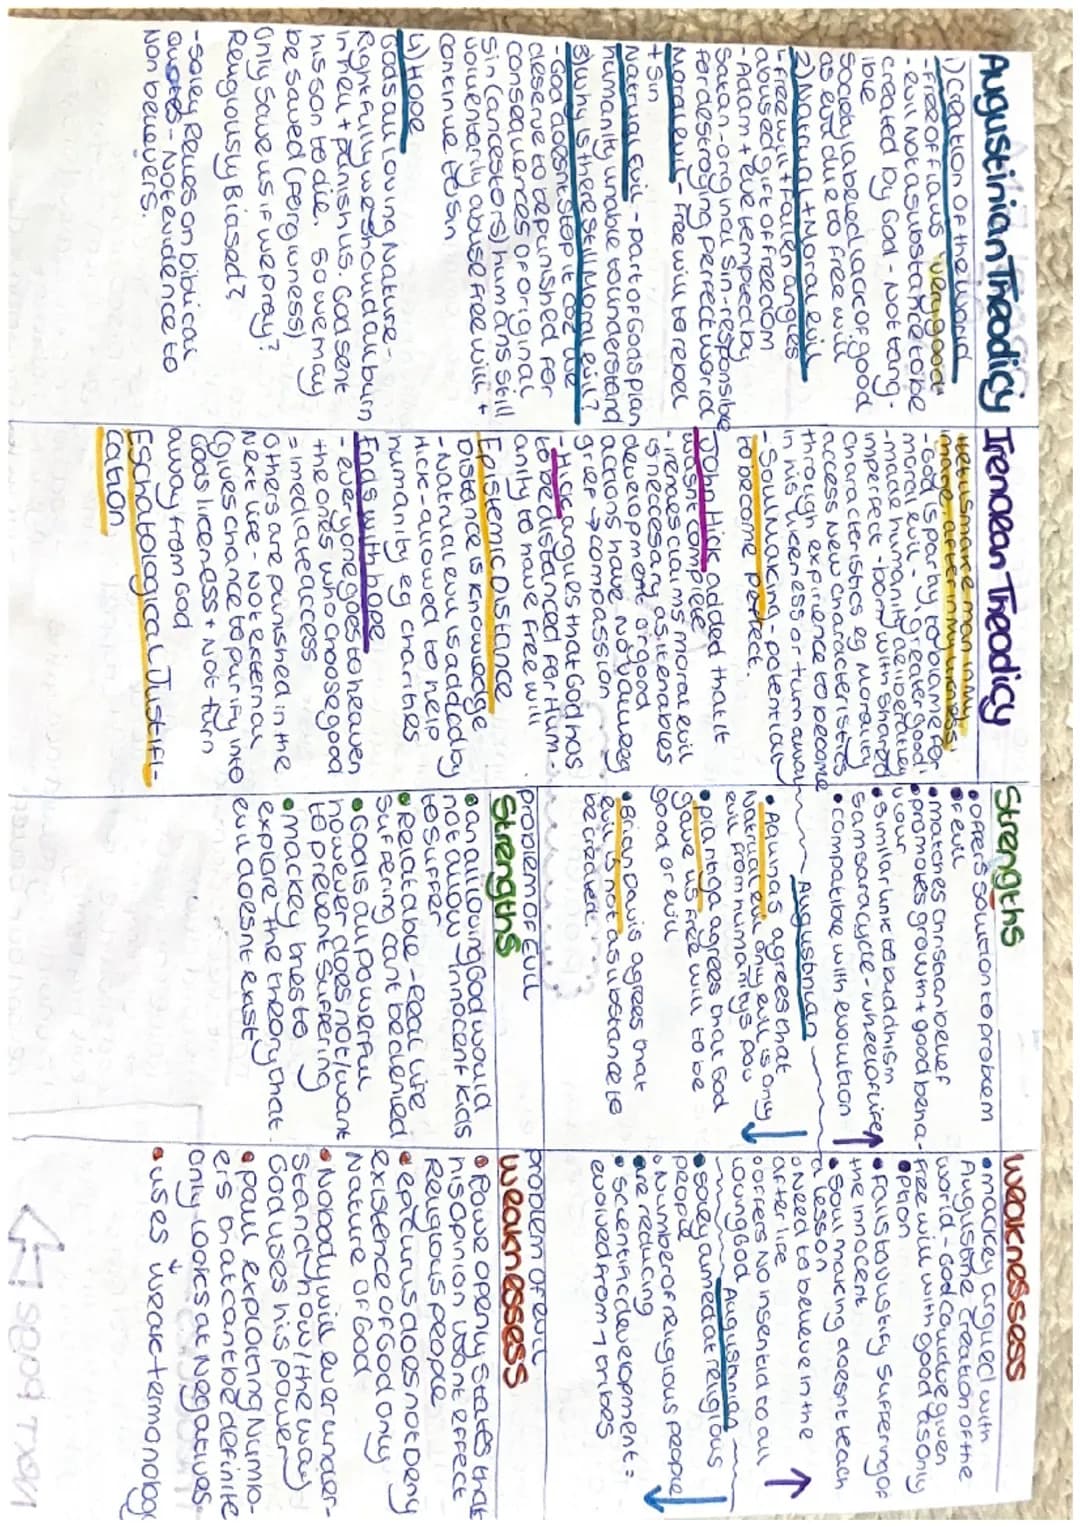 Augustinian Theodicy
1) Creation OF the world
-Free of flaws "very good"
-evil not a substance to be
created by God - Not tang-
ible
Society labeled lack of good
as evil due to free will
2) Natural + Moral evil
-Free will + fallen angles
abused gift of freedom
-Adam + Eve tempted by
Satan - original sin - responsible
for destroying perfect world
Moral evil - free will to rebel
+ sin
Natrual Evil - part of Gods plan
humanity unable to understand
3) Why is there still Moral evil?
-God doesnt stop it coz we
deserve to be punished for
consequences of original
sin (ancestors) humans still
voluentarily abuse free will +
continue to sin
4) Hope
Gods all loving Nature -
Rightfully we should all burn
in hell + punish us. God sent
his son to die. So we may
be saved (forgivness)
Only saves us if we pray?
Religiously Biased?
-soley relies on biblical
quotes - Not evidence to
Non believers.
Irenaean Theodicy
"let us make man in my
image after my likness"
-God is partly to blame for
moral evil - (greater good)
-made humanity deliberatley
imperfect - born with shared
characteristics
access new characteristics eg Morality
through expirience to become
in his likeness or turn away
-Soul Making - potential
to become perfect.
John Hick added that it
wasnt complete
-irenaes claims moral evil
is neccesary as it enables
development of good
actions have. Not always
grief → compassion
-Hick argues that God has
to be distanced for Hum-
anity to have free will
Epistemic distance
Distance is Knowledge
-Natural evil is added by
Hick - allowed to help
humanity eg charities
Ends with hope
-everyone goes to heaven
the ones who choose good
= imediate access
Others are punished in the
next life - Not external
(gives chance to purify into
Gods liceness + Not turn
away from God
Eschatological Justifi-
cation
Strengths
• Offers solution to problem
of evil
• matches christan belief
• promotes growth + good beha-
viour
• Similar link to buddhism
samsara cycle - wheel of life
• compatible with evolution
Augustinian
• Aquinas agrees that
Natrual evil only evil is only
evil from humanitys pov
• plantinga agrees that God
gave us free will to be
good or evil
• Brian Davis agrees that
evil is not a substance to
be created.
problem of Evil
Strengths
• an all loving God would
not allow innocent kids
to suffer
• Relatable - real life
suffering cant be denied
• God is all powerful
however does not/want
to prevent suffering
• mackey ones to
explore the theory that
evil doesnt exist
Weaknesses
• mackey argued with
Augustine creation of the
world - God couldve given
free will with good as only
option
• Fails to justify suffering of
the innocent
• Soul making doesnt teach
a lesson
Need to believe in the
afterlife
Offers no insentid to all
loving God
Augustinian
• Soley aimed at religious
people
Number of religious people
are reducing
• Scientific development =
evolved from tribes
problem of evil
Weaknesses
• Rowe openly states that
his opinion wont effect
Religious people
• epicurus does not deny
existence of God only
Nature of God
• Nobody will ever under-
stand how/the way
God uses his power
• paul exploiting Numbo-
ers on atcantbe definite
only looks at Negatives
• uses weak termonology